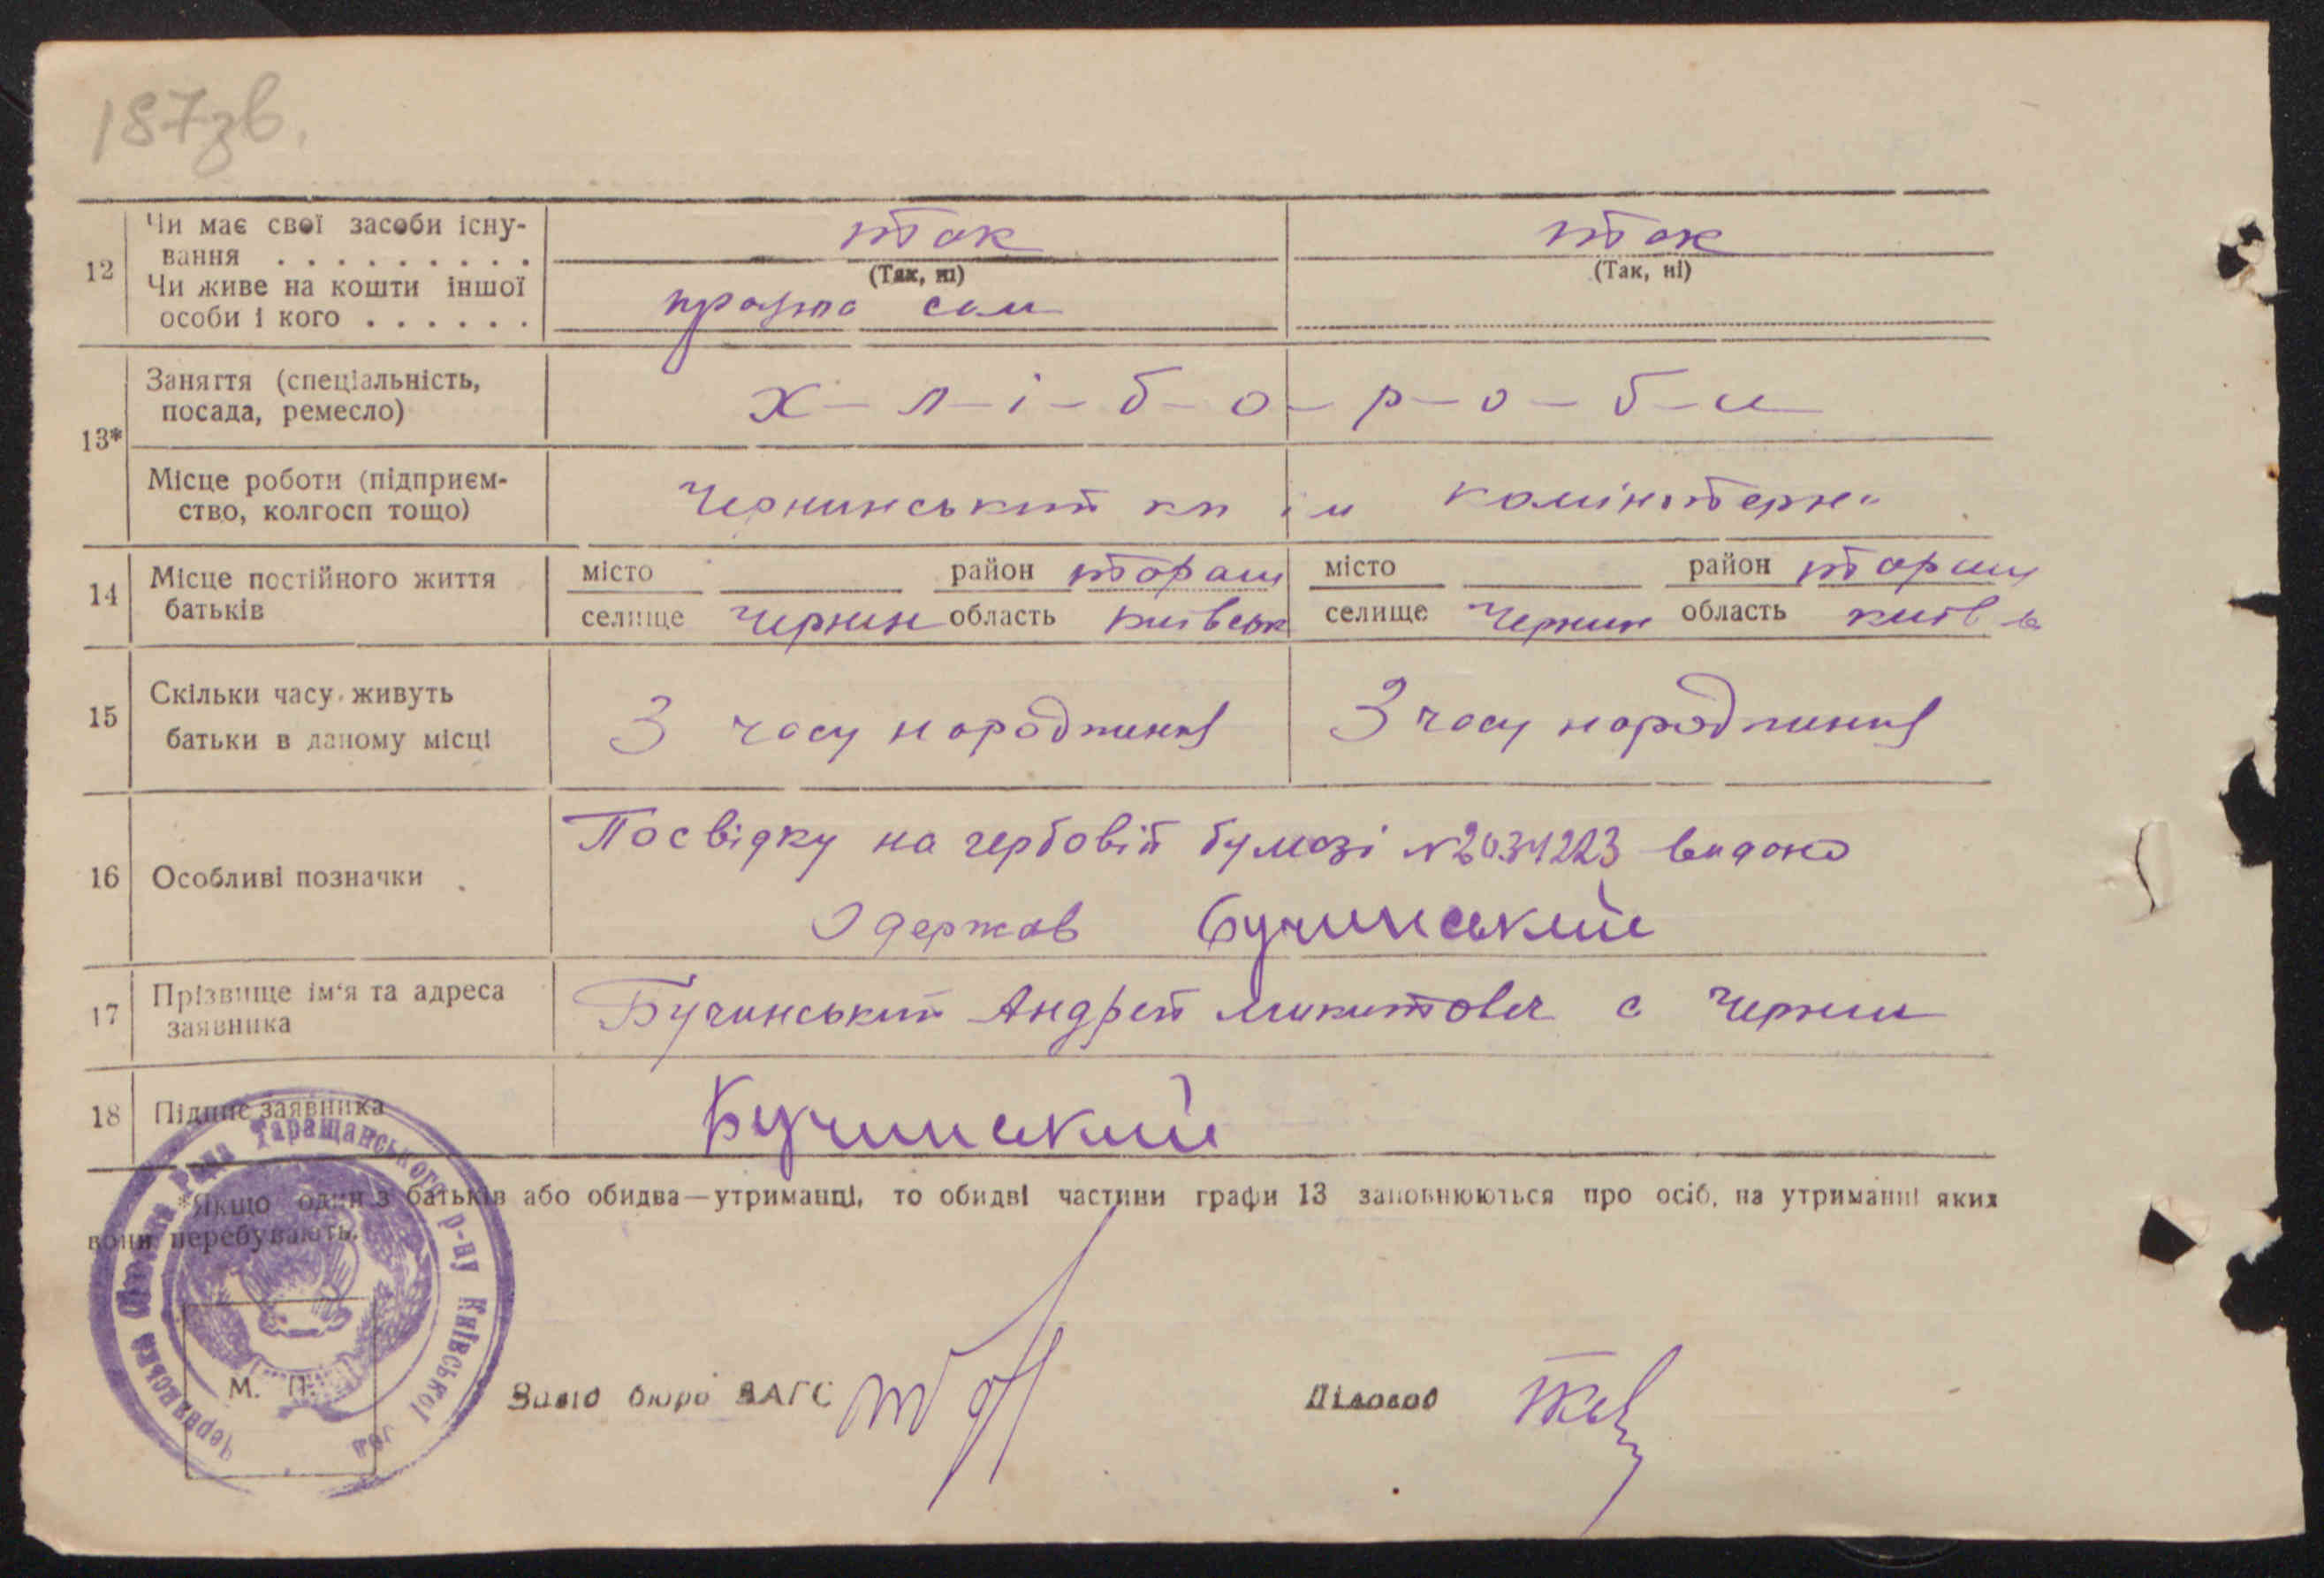 187зв.
12 Чи має свої засоби існу-
вання . . . . . . . . .
так
(Так, ні)
так
(Так, ні)
Чи живе на кошти іншої
особи і кого . . . . . .
сам
13* Заняття (спеціальність,
посада, ремесло)
х - л - і - б - о - р - о - б - и
Місце роботи (підприєм-
ство, колгосп тощо)
Чернинський кп ім комінтерна
14 Місце постійного життя
батьків
місто район таращ
селище Чернин область київськ
місто район таращ
селище Чернин область київ
15 Скільки часу живуть
батьки в даному місці
З часу народження
З часу народження
16 Особливі позначки
Посвідку на гербовій бумазі № видано
Одержав Бучинський
17 Прізвище ім'я та адреса
заявника
Бучинський Андрей Микитович с Чернин
18 Підпис заявника
Бучинский
*Якщо один з батьків або обидва—утриманці, то обидві частини графи 13 заповнюються про осіб, на утриманні яких
вони перебувають.
Чернинська Сільська Рада Таращанського р-ну Київської обл
М. П.
Завід бюро ЗАГС
Діловод